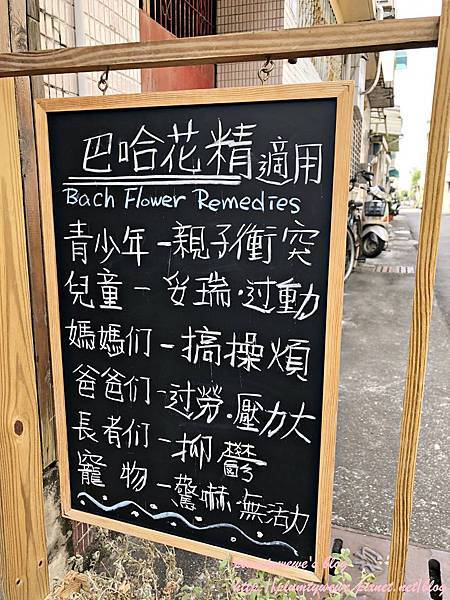 巴哈花精適用
Bach Flower Remedies
青少年-親子衝突
兒童-妥瑞·过動
媽媽们-搞操煩
爸爸们-过勞·壓力大
長者们-抑鬱
寵物-驚嚇·無活力
plumtywewe's blog
http://plumtywewe.pixnet.net/blog